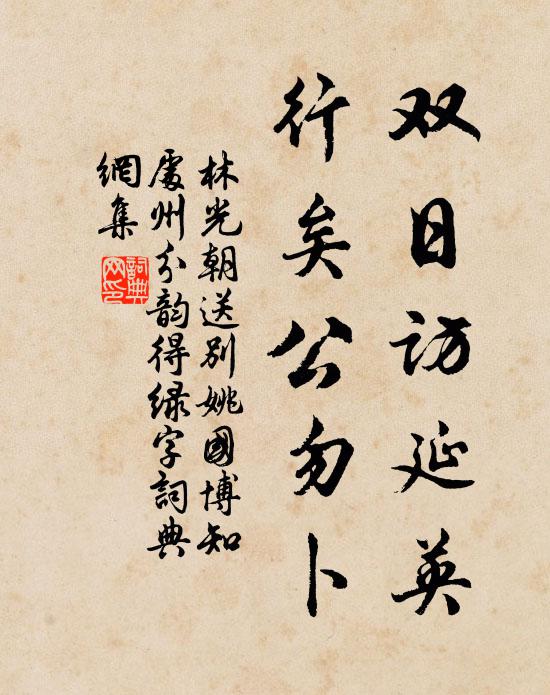 双日访延英
行矣公勿卜
林光朝送别姚國博知
處州分韵得绿字詞典
網集
詞典
网印